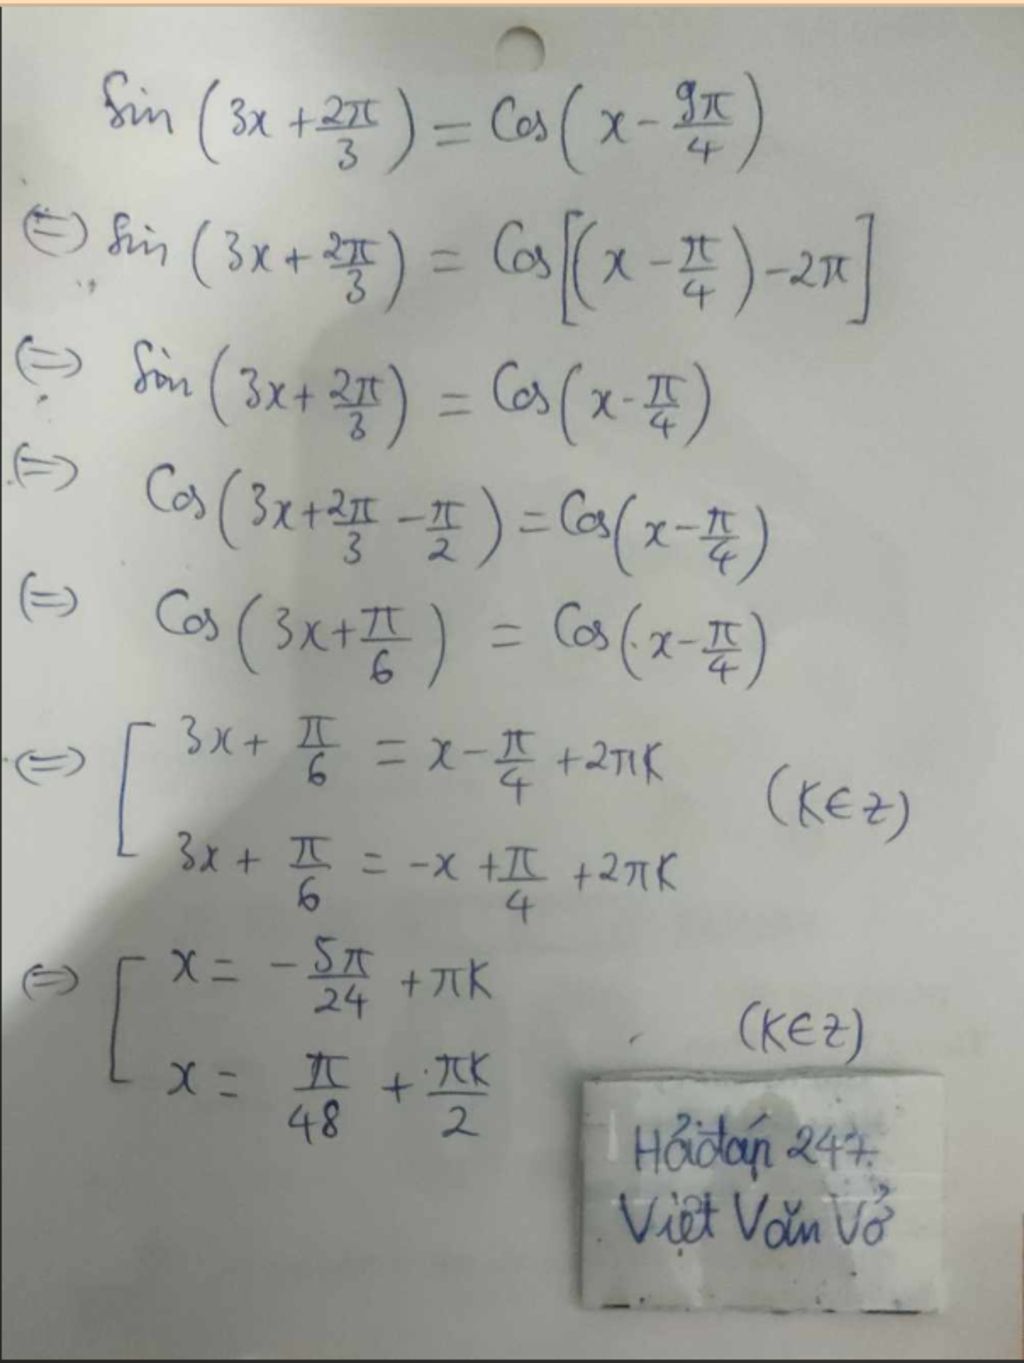 Sin (3x + 2π/3) = Cos (x - 9π/4)
(=) Sin (3x + 2π/3) = Cos [(x - π/4) - 2π]
(=) Sin (3x + 2π/3) = Cos (x - π/4)
(=) Cos (3x + 2π/3 - π/2) = Cos (x - π/4)
(=) Cos (3x + π/6) = Cos (x - π/4)
(=) [ 3x + π/6 = x - π/4 + 2πK
(K∈Z)
3x + π/6 = -x + π/4 + 2πK
(=) [ x = - 5π/24 + πK
(K∈Z)
x = π/48 + πK/2
Hỏi đáp 247
Việt Văn Vở